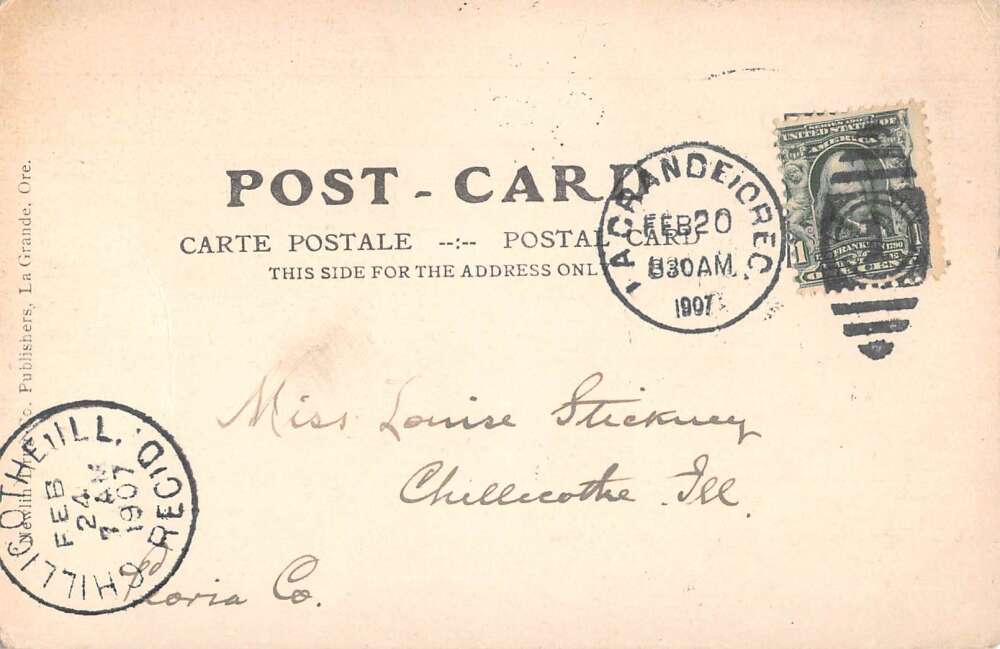 POST - CARD
CARTE POSTALE --:-- POSTAL CARD
THIS SIDE FOR THE ADDRESS ONLY
LA GRANDE, OREG.
FEB 20
830 AM
1907
UNITED STATES OF
AMERICA
FRANKLIN 1790
1 1
ONE CENT
Miss Louise Stickney
Chillicothe Ill.
Peoria Co.
CHILLICOTHE, ILL. REC'D.
FEB
24
7 AM
1907
Publishers, La Grande, Ore.